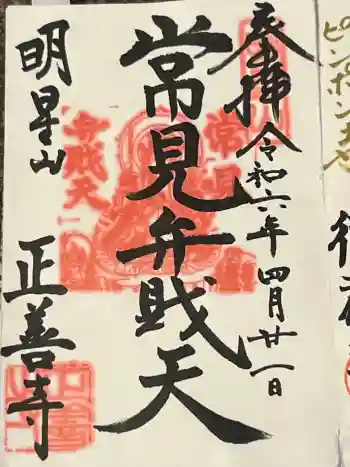 奉拝 令和六年四月廿一日
常見弁財天
明星山 正善寺
弁財天
常見